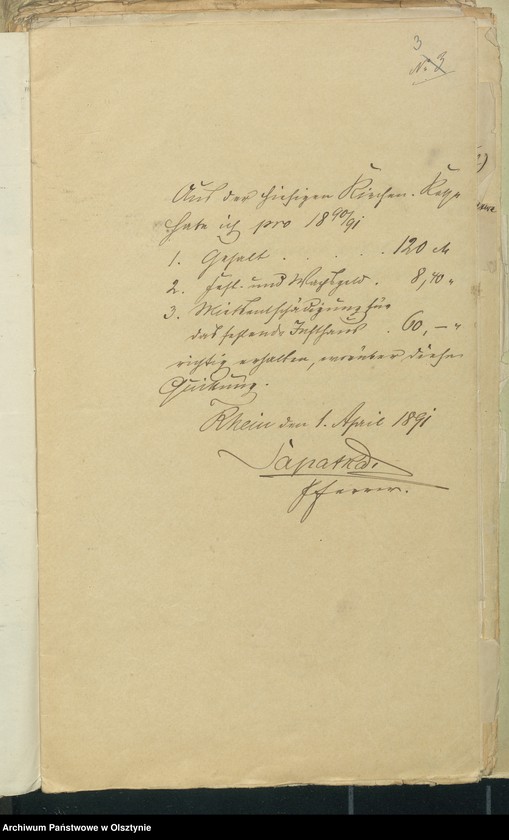 3
No 3
Aus der hiesigen Kirchen-Kasse
habe ich pro 1890/91
1. Gehalt . . . . 120 M
2. Fest- und Wachsgeld . 8,40 "
3. Mietsentschädigung für
das fehlende Insthaus . 60,— "
richtig erhalten, worüber diese
Quittung.
Rhein den 1. April 1891
Sapatka.
Pfarrer.
Archiwum Państwowe w Olsztynie